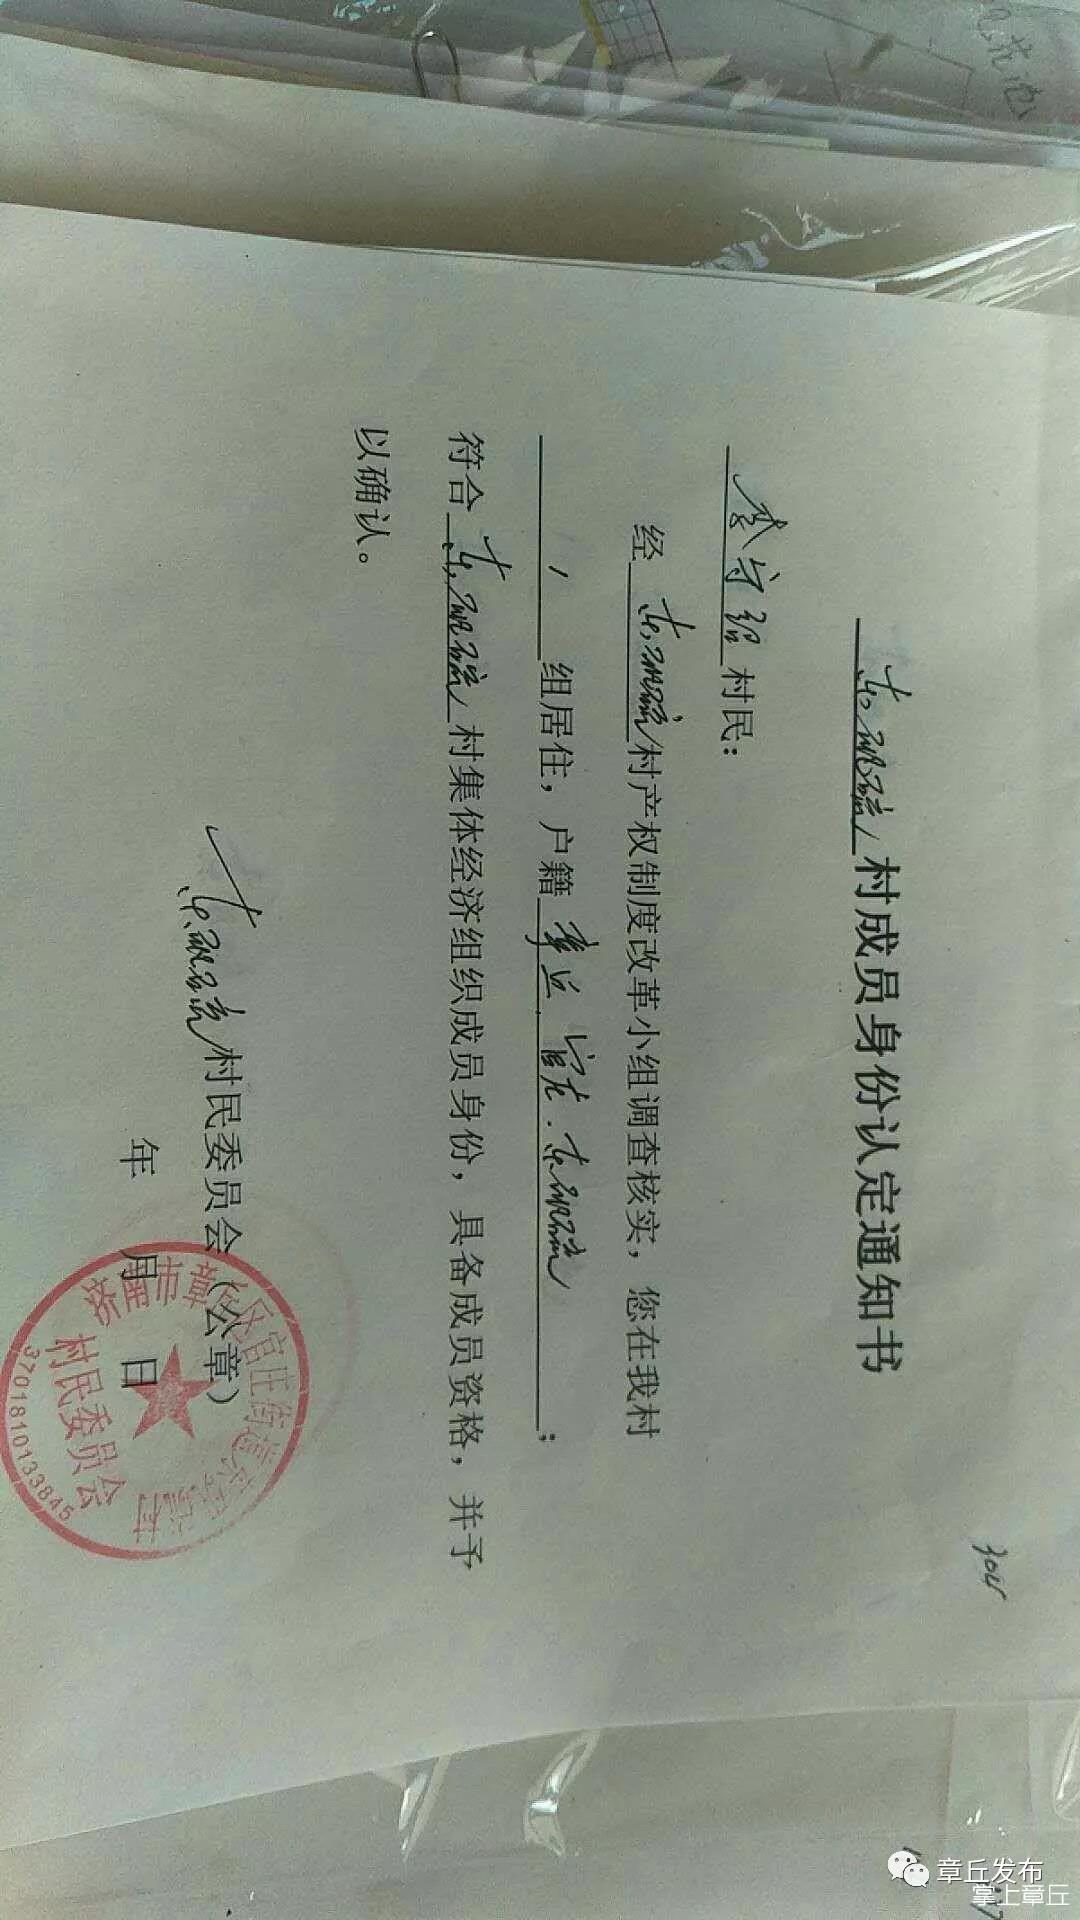 村成员身份认定通知书
李守绍村民：
经 村产权制度改革小组调查核实，您在我村
1 组居住，户籍章丘官庄.东 ；
符合 村集体经济组织成员身份，具备成员资格，并予
以确认。
村民委员会（公章）
年 月 日
济南市章丘区官庄街道东 村
村民委员会
3701810133845
304
章丘发布
掌上章丘